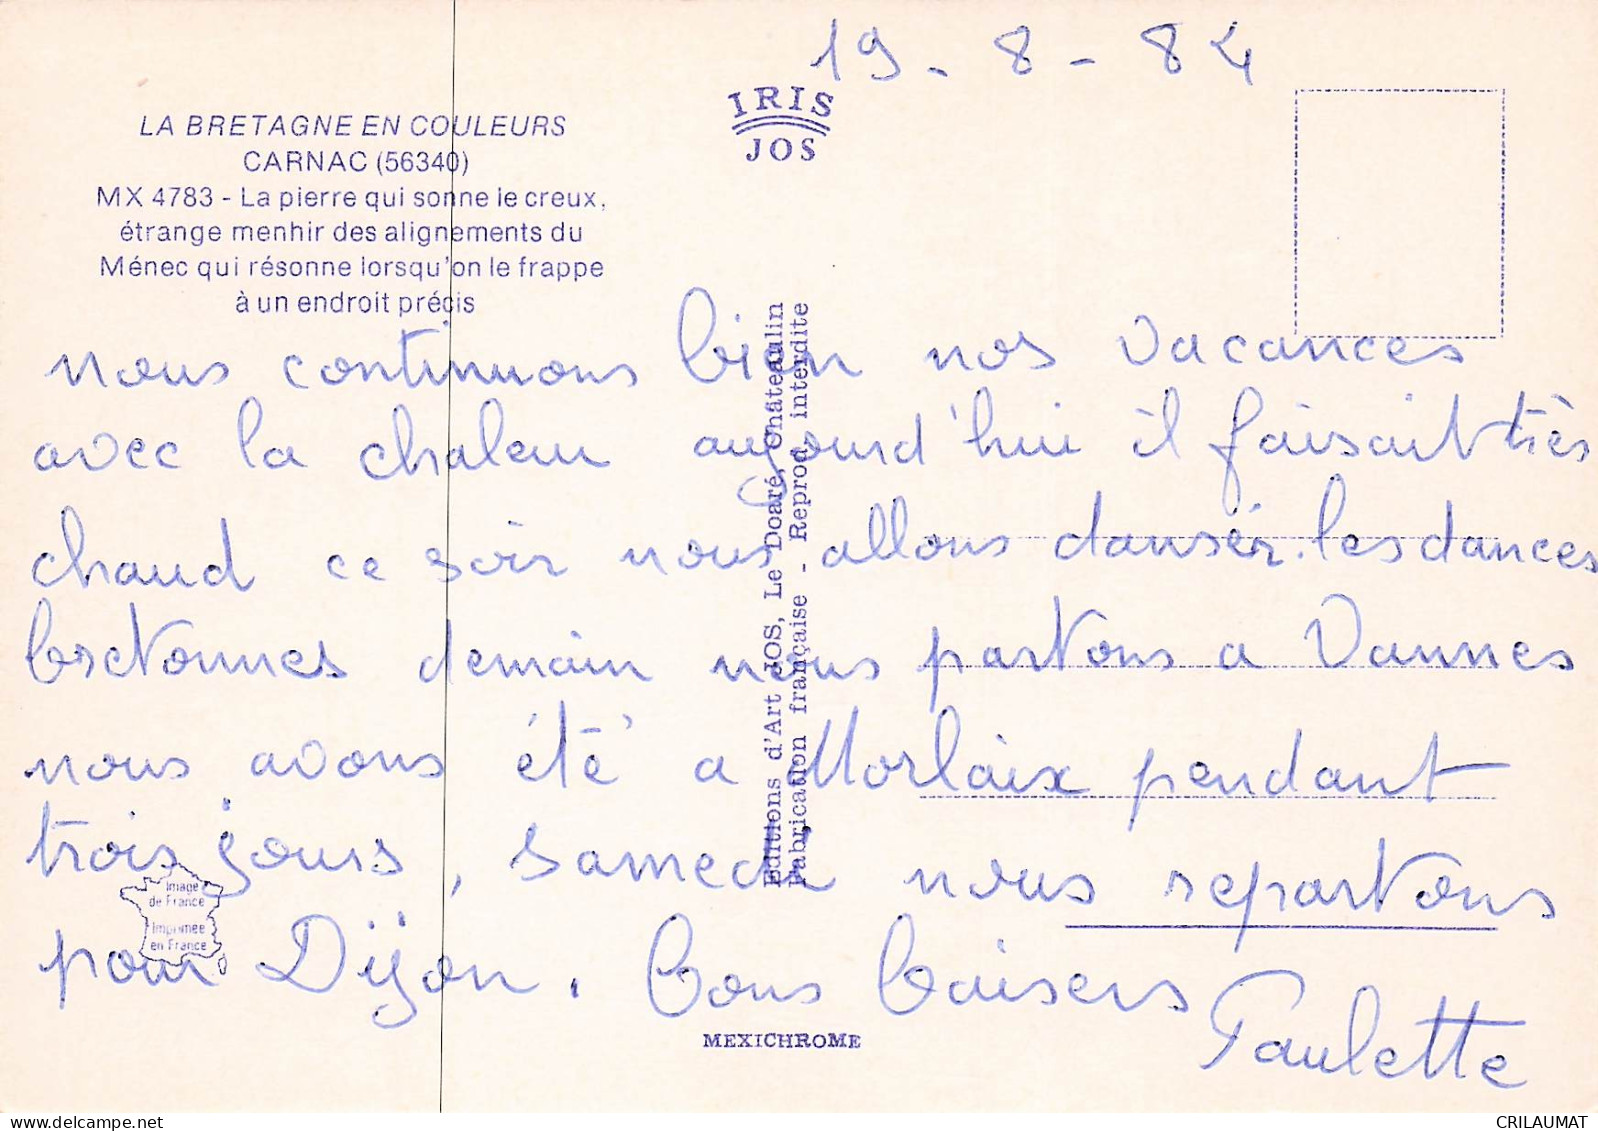 19 - 8 - 84
IRIS
JOS
LA BRETAGNE EN COULEURS
CARNAC (56340)
MX 4783 - La pierre qui sonne le creux,
étrange menhir des alignements du
Ménec qui résonne lorsqu'on le frappe
à un endroit précis
nous continuons bien nos vacances
avec la chaleur aujourd'hui il faisait très
chaud ce soir nous allons danser. les dances
bretonnes demain nous partons a Vannes
nous avons été a Morlaix pendant
trois jours, samedi nous repartons
pour Dijon. bons baisers
Paulette
Editions d'Art JOS, Le Doaré, Châteaulin
Fabrication française - Reprod. interdite
Image
de France
Imprimée
en France
MEXICHROME
delcampe.net
CRILAUMAT